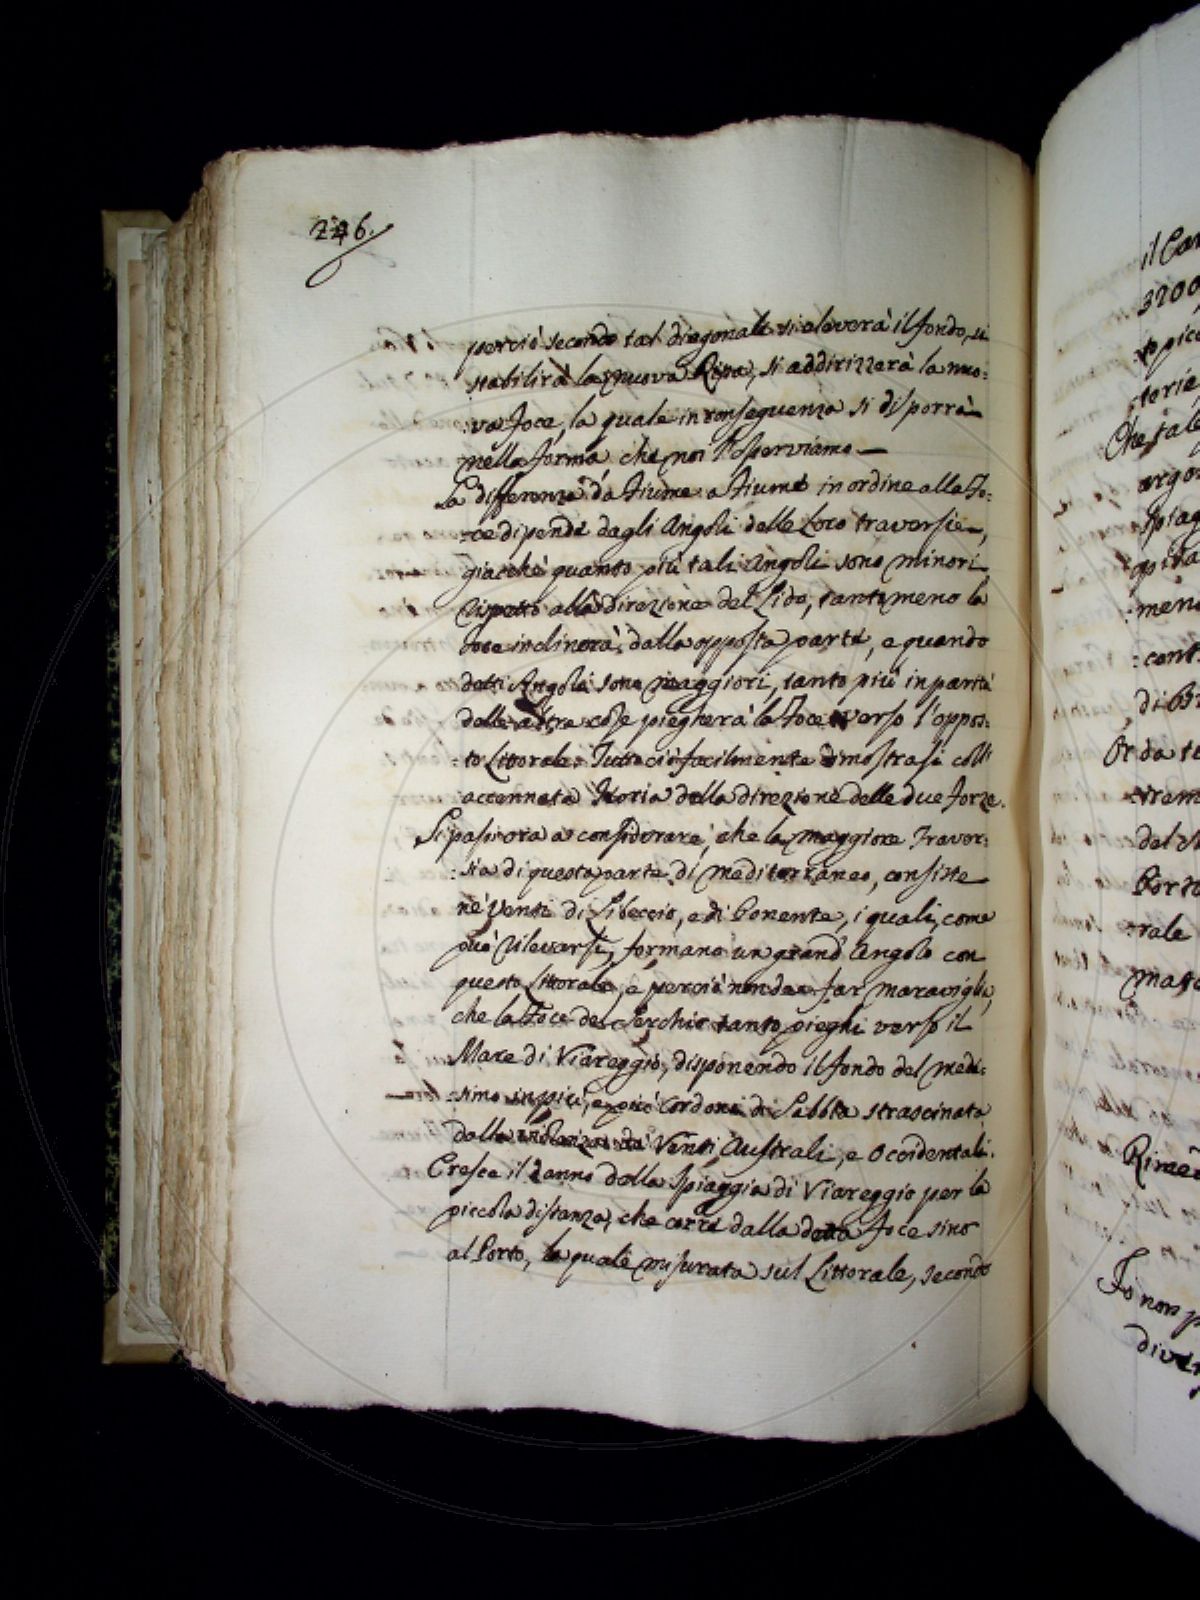 246.
perciò secondo tal diagonale si eleverà il fondo, si
stabilirà la nuova Ripa, si addirizzerà la nuo:
:va foce, la quale in conseguenza si disporrà
nella forma che noi l'osserviamo
La differenza da fiume a fiume in ordine alla fo:
:ce dipende dagli Angoli delle loro traversie,
giacchè quanto più tali Angoli sono minori
rispetto alla direzione del Lido, tanto meno la
foce inclinerà dalla opposta parte, e quando
detti Angoli sono maggiori, tanto più in parità
delle altre cose piegherà la foce verso l'oppos:
:to Littorale. Tutto ciò facilmente dimostrasi coll'
accennata Storia della direzione delle due forze.
Si passi ora a considerare, che la maggiore Traver:
:sia di questa parte di mediterraneo, consiste
ne' Venti di Libeccio, e di Ponente, i quali, come
può rilevarsi, formano un grand' Angolo con
questo Littorale, e perciò non dee far maraviglia,
che la Foce del Serchio tanto pieghi verso il
Mare di Viareggio, disponendo il fondo del mede:
:simo in più, e più Cordoni di Sabbia strascinata
dalla da' Venti Australi, e Occidentali.
Cresce il danno della Spiaggia di Viareggio per la
piccola distanza, che corre dalla detta foce sino
al Porto, la quale misurata sul Littorale, secondo
il Can
3200
to picc
torie
Che tale
argo
Spiag
opita
meno
:cont
di B
Or da te
trem
del
Bord
:rale
mag
Rime
Io non p
diver